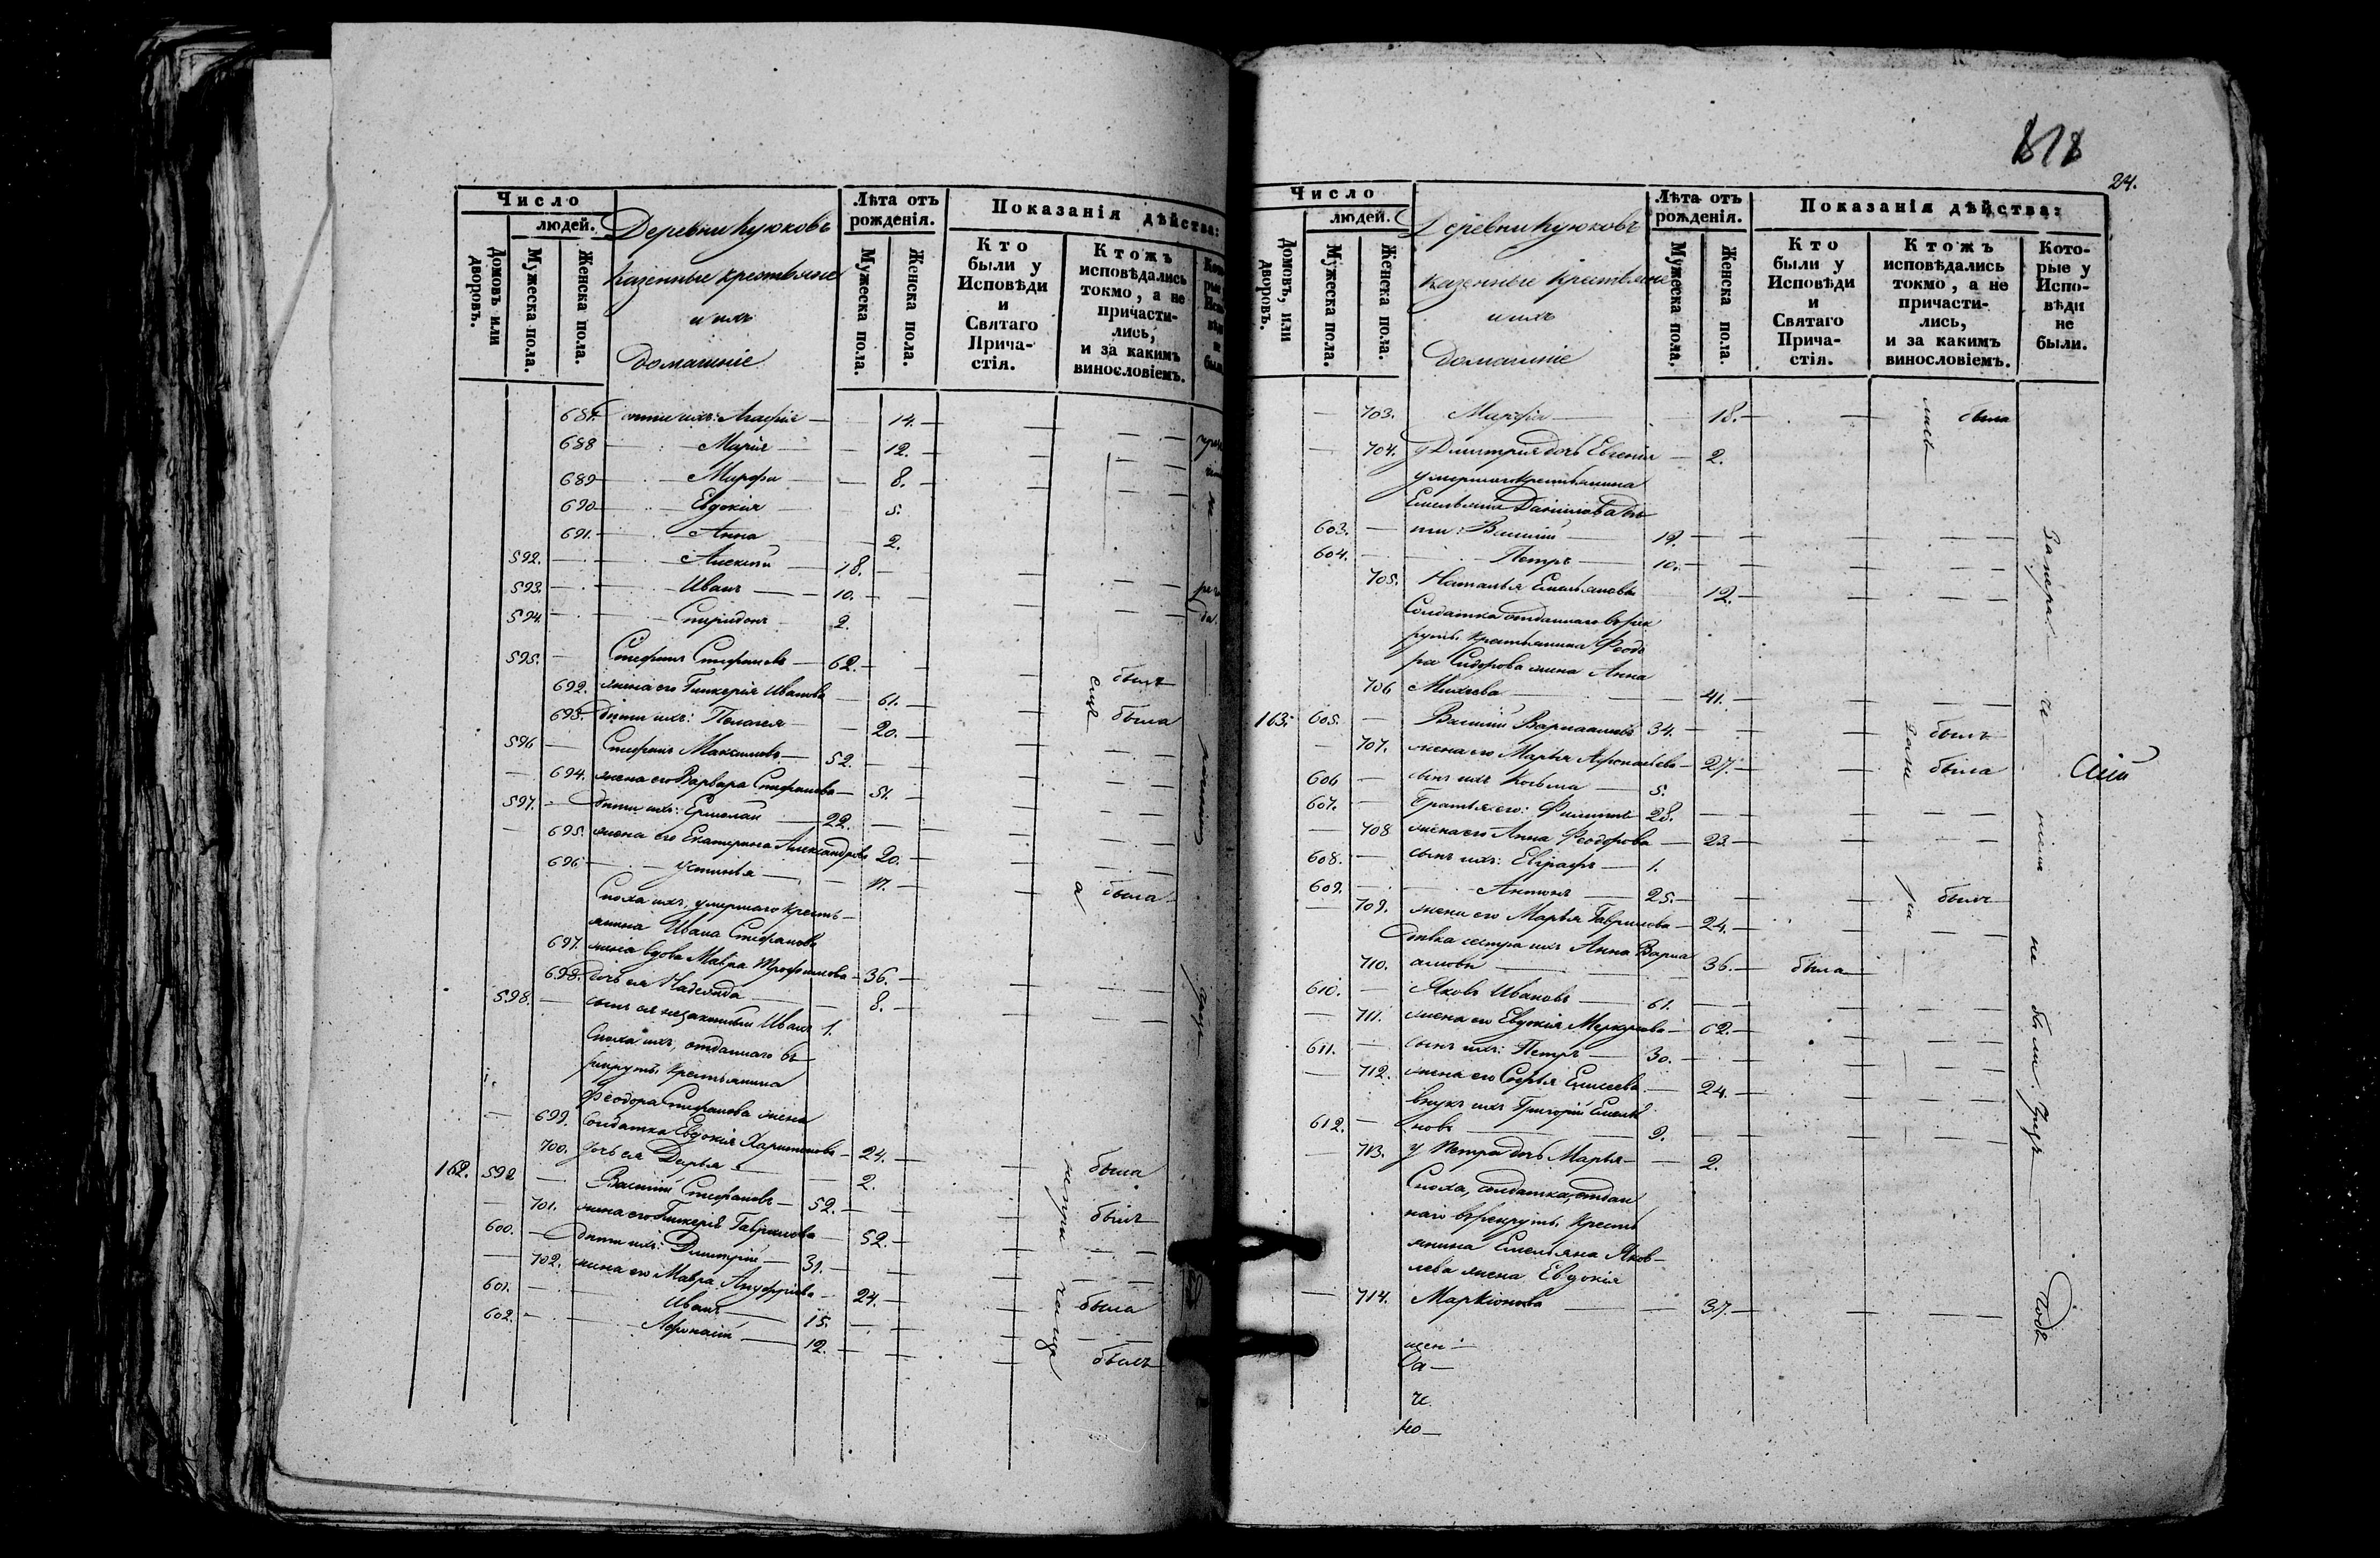 Число
людей.
Домовъ или дворовъ.
Мужеска пола.
Женска пола.
Деревни Куюковъ
казенные крестьяне
и ихъ
домашніе
Лѣта отъ рожденія.
Мужеска пола.
Женска пола.
Показанія дѣйства:
Кто были у Исповѣди и Святаго Прича-стія.
Ктожъ исповѣдались токмо, а не причасти-лись, и за какимъ винословіемъ.
687. дѣти ихъ: Агафія — 14.
688 Марія — 12.
689 Марфа — 8.
690 Евдокія — 5.
691. Анна — 2.
592. Алексѣй — 18.
593. Иванъ — 10.
594. Спиридонъ 2.
595. Стефанъ Стефановъ — 62. былъ
692. жена его Гликерія Иванова 61. была
693. дѣти ихъ: Пелагея — 20.
596 Стефанъ Максимовъ — 52.
694. жена его Варвара Стефанова — 51.
597. дѣти ихъ: Ермолай — 22.
695. жена его Екатерина Александрова 20.
696 Устинья — 17. была
Сноха ихъ, умершаго кресть-
янина Ивана Стефанова
697. жена вдова Мавра Трофимова — 36.
698. дочь ея Надежда — 8.
598. сынъ ея незаконный Иванъ 1.
Сноха ихъ, отданнаго въ
рекруты крестьянина
Феодора Стефанова жена
699. солдатка Евдокія Харитонова — 24. была
700. дочь ея Дарья — 2.
162. 599 Василій Стефановъ — 52. былъ
701. жена его Гликерія Гаврилова 52.
600. дѣти ихъ: Дмитрій — 31.
702. жена его Мавра Ануфріева — 24. была
601. Иванъ — 15.
602. Афонасій — 12. былъ
818
24.
Число
людей.
Домовъ, или дворовъ.
Мужеска пола.
Женска пола.
Деревни Куюковъ
казенные крестьяне
и ихъ
домашніе
Лѣта отъ рожденія.
Мужеска пола.
Женска пола.
Показанія дѣйства:
Кто были у Исповѣди и Святаго Прича-стія.
Ктожъ исповѣдались токмо, а не причасти-лись, и за какимъ винословіемъ.
Кото-рые у Испо-вѣди не были.
703. Марфа — 18. была
704. у Дмитрія дочь Евгенія — 2.
умершаго крестьянина
Емельяна Данилова дѣ-
603. ти: Василій — 19.
604. Петръ — 10.
705. Наталья Емельянова 12.
Солдатка отданнаго въ рек
руты крестьянина Феодо
ра Сидорова жена Анна
706 Михеева — 41.
163. 605. Василій Варлаамовъ 34. былъ
707. жена его Марья Афонасьева — 27. была
606 сынъ ихъ Козьма — 5.
607. Братья его: Филиппъ 28.
708 жена его Анна Феодорова — 23.
608. сынъ ихъ: Евграфъ — 1.
609. Антонъ — 25. былъ
709. жена его Марья Гаврилова — 24.
Дѣвка сестра ихъ Анна Варла
710. амова — 36. была
610. Яковъ Ивановъ — 61.
711. жена его Евдокія Меркурьева — 62.
611. сынъ ихъ: Петръ — 30.
712. жена его Софья Елисеева — 24.
внукъ ихъ Григорій Емелья
612. новъ — 9.
713. у Петра дочь Марья — 2.
Сноха, солдатка, отдан
наго въ рекруты крестья
янина Емельяна Яков-
лева жена Евдокія
714. Маркіонова — 37.
За нера
не были
годѣ
Сей
щен
Са
че
но